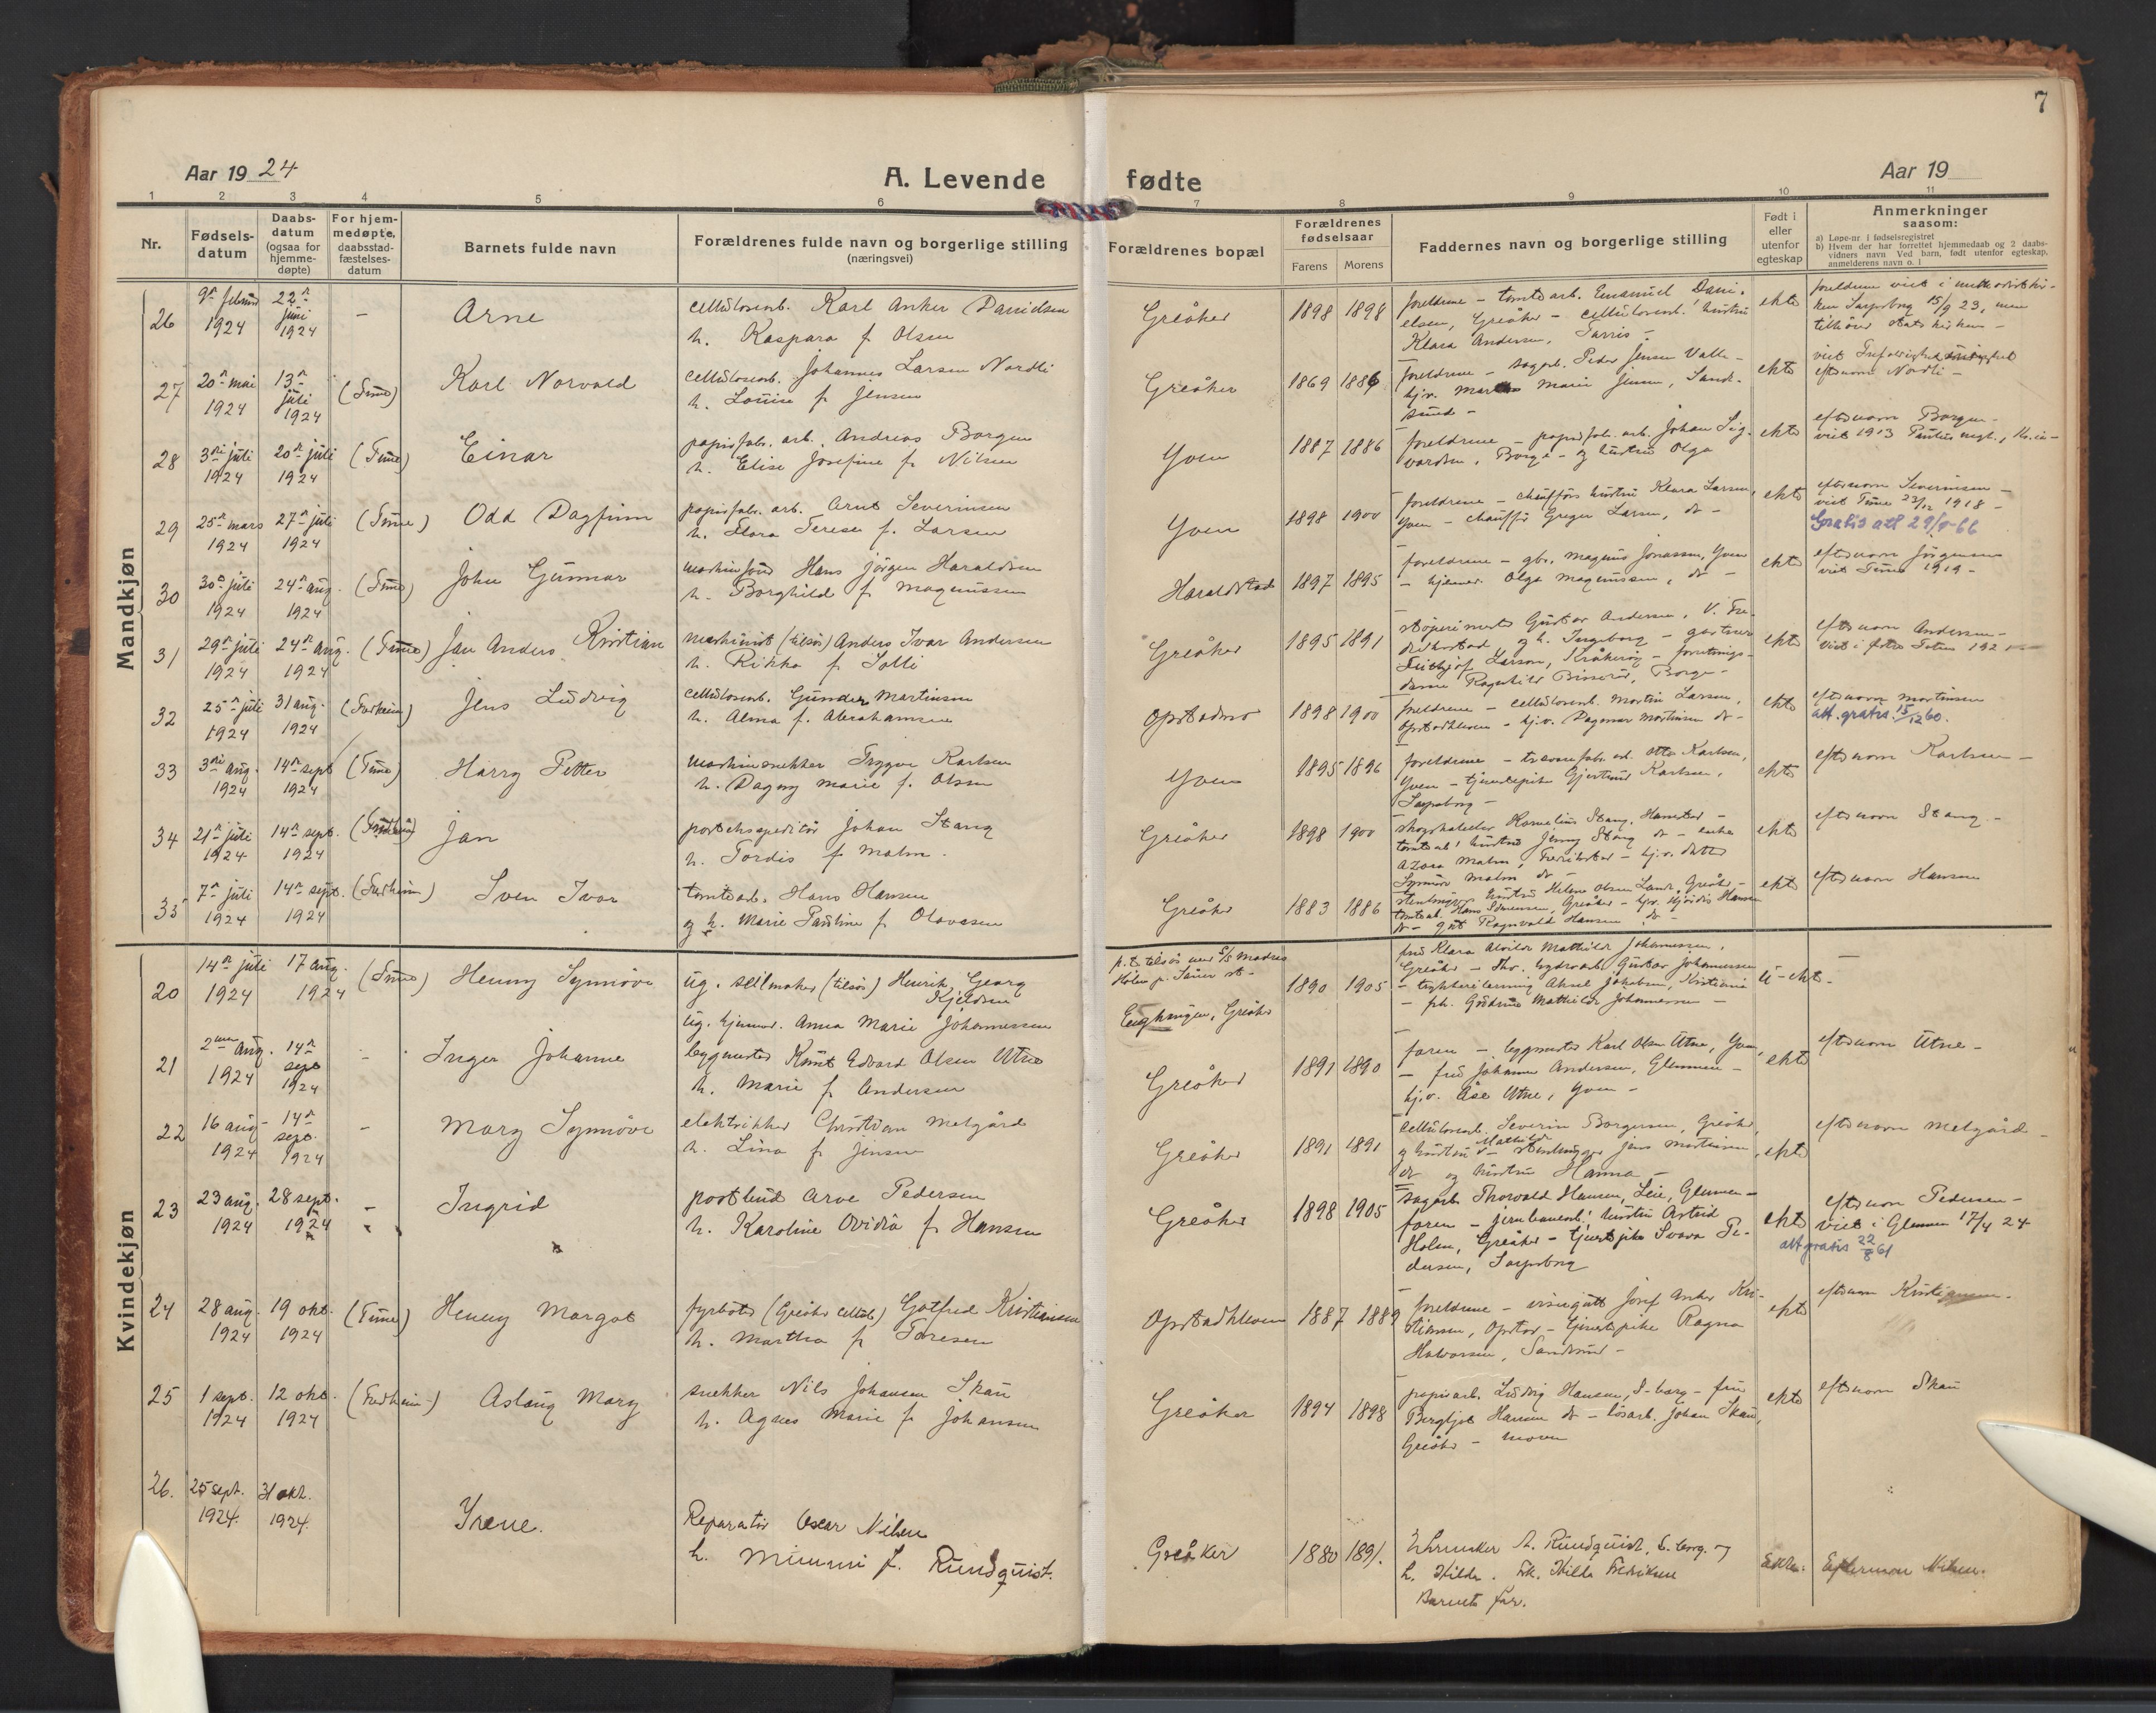 7
Aar 1924
A. Levende fødte
Aar 19
1 2 3 4 5 6 7 8 9 10 11
Nr.
Fødsels-
datum
Daabs-
datum
(ogsaa for
hjemme-
døpte)
For hjem-
medøpte,
daabsstad-
fæstelses-
datum
Barnets fulde navn
Forældrenes fulde navn og borgerlige stilling
(næringsvei)
Forældrenes bopæl
Forældrenes
fødselsaar
Farens Morens
Faddernes navn og borgerlige stilling
Født i
eller
utenfor
egteskap
Anmerkninger
saasom:
a) Løpe-nr. i fødselsregistret
b) Hvem der har forrettet hjemmedaab og 2 daabs-
vidners navn. Ved barn, født utenfor egteskap,
anmelderens navn o. l
Mandkjøn
26 22n
1924 juni 1924 – Arne
cellulosearb. Karl Anker Danielsen
h. Kaspara f. Olsen
Greåker 1898 1898
foreldrene – tomtearb. Emanuel Dani-
elsen, Greåker – cellulosearb. hustru
Klara Andersen,
ekte
27 20n mai 1924 13n juli 1924 (Tune) Karl Norvald
cellulosearb. Johannes Larsen Nordli
h. Louise f. Jensen
Greåker 1869 1886
foreldrene – Peder Jensen
Marie Jensen, Sand-
sund –
ekte
eftern. Nordli –
28 3die juli 1924 20n juli 1924 (Tune) Einar
papirfabr. arb. Andreas Borgen
h. Elise Josefine f. Nilsen
Yven 1887 1886
foreldrene – papirfab. arb. Johan Sig-
vardsen, Borge – og hustru Olga
ekte
efternavn Borgen –
viet 1913
29 25n mars 1924 27n juli 1924 (Tune) Odd Dagfinn
papirfabr. arb. Arnt Severinsen
h. Flora Terese f. Larsen
Yven 1898 1900
foreldrene – chaufførs hustru Klara Larsen,
Yven – chauffør Greger Larsen, do –
ekte
efternavn Severinsen –
viet Tune 23/12 1918 –
Gratis att
30 30n juli 1924 24n aug. 1924 (Tune) John Gunnar
Hans Jörgen Haraldsen
h. Borghild f. Magnussen
Haraldstad 1897 1895
foreldrene – gbr. Magnus Jonassen, Yven
– hjemmev. Olga Magnussen, do –
ekte
viet Tune 1919 –
31 29n juli 1924 24n aug. 1924 (Tune) Jan Anders Kristian
maskinist (tilsjøs) Anders Ivar Andersen
h. Rikka f. Solli
Greåker 1895 1891
Gustav Andersen, V. Fre-
drikstad og h. Ingeborg – gartner
Fritjof Larsen, Kråkerøy – forretnings-
dame Ragnhild Borge –
ekte
efternavn Andersen –
32 25n juli 1924 31 aug. 1924 Jens Ludvig
cellulosearb. Gunder Martinsen
h. Alma f. Abrahamsen
Opstadmo 1898 1900
foreldrene – cellulosearb. Martin Larsen,
Opstadkleven – hj.v. Dagmar Martinsen do –
ekte
efternavn Martinsen
att. gratis 15/12 60.
33 3die aug. 1924 14n sept 1924 (Tune) Harry Petter
maskinsnekker Trygve Karlsen
h. Dagny Marie f. Olsen
Yven 1895 1896
foreldrene – Otto Karlsen,
Yven – tjenestepike Gjertrud Karlsen,
Sarpsborg –
ekte
efternavn Karlsen –
34 21n juli 1924 14n sept. 1924 Jan
postekspeditör Johan Stang
h. Tordis f. Malm.
Greåker 1898 1900
Kornelius Stang, –
hustru Jenny Stang do – enke
Malm, Fredrikstad – hj.v.
Synnöve Malm do –
ekte
efternavn Stang –
35 7n juli 1924 14n sept. 1924 Sven Ivar
tomtearb. Hans Hansen
og h. Marie Pauline f. Olavesen
Greåker 1883 1886
hustru Helene Olsen Greåker –
tomtearb. Hans Sörensen, Greåker – hjv. Hansen
do – Ragnvald Hansen do –
ekte
efternavn Hansen
Kvindekjøn
20 14n juli 1924 17 aug. 1924 (Tune) Henny Synnöve
ug. seilmaker (tilsjøs) Henrik Georg
Kjeldsen
ug. hjemmev. Anna Marie Johannessen
Greåker
1890 1905
fru Klara Alvilde Mathilde Johannessen,
Greåker – Gustav Johannessen
Jakobsen, Kristiania
– Mathilde Johannessen –
u-ekte –
21 2nen aug. 1924 14n sept 1924 – Inger Johanne
bygmester Knut Edvard Olsen Utne
h. Marie f. Andersen
Greåker 1891 1890
faren – bygmester Karl Olsen Utne, Yven,
– fru Johanne Andersen, Glemmen –
hj.v. Åse Utne, Yven –
ekte
efternavn Utne –
22 16 aug. 1924 14n sept. 1924 – Mary Synnöve
elektrikker Christian Melgård
h. Lina f. Jensen
Greåker 1891 1891
cellulosearb. Severin Borgersen, Greåker,
og hustru Mathilde do – stenhugger Jens Martinsen,
do og hustru Hanna –
ekte
efternavn Melgård –
23 23 aug. 1924 28 sept. 1924 – Ingrid
postbud Arve Pedersen
h. Karoline Ovidia f. Hansen
Greåker 1898 1905
sagarb. Thorvald Hansen, Leie, Glemmen –
faren – jernbanearb. hustru Astrid
Holm, Greåker – tjenestpike Svava Pe-
dersen, Sarpsborg
ekte
efternavn Pedersen –
viet i Glemmen 17/4 24
att gratis 22/8 61
24 28 aug. 1924 19 okt. 1924 (Tune) Henny Margot
fyrböter (Greåker cellulo) Gotfred Kristiansen
h. Martha f. Toresen
Opstadkleven 1887 1889
foreldrene – visergutt Josef Anker Kri-
stiansen, Opstad – tjenestpike Ragna
Halvorsen, Sandsund –
ekte
efternavn Kristiansen.
25 1 sept. 1924 12 okt. 1924 (Fredheim) Aslaug Mary
snekker Nils Johansen Skau
h. Agnes Marie f. Johansen
Greåker 1894 1898
papirarb. Ludvig Hansen, S-borg – fru
Bergljot Hansen do – lösarb. Johan Skau,
Greåker – moren
ekte
efternavn Skau
26. 25 sept. 1924. 31 okt. 1924. Irene.
Reparatör Oscar Nilsen
h. Mimmi f. Rundquist.
Greåker 1880 1891.
A. Rundquist, S. borg. og
h. Hilda. Frk. Hilda Fredriksen
Barnets far.
Ekte.
Efternavn Nilsen.